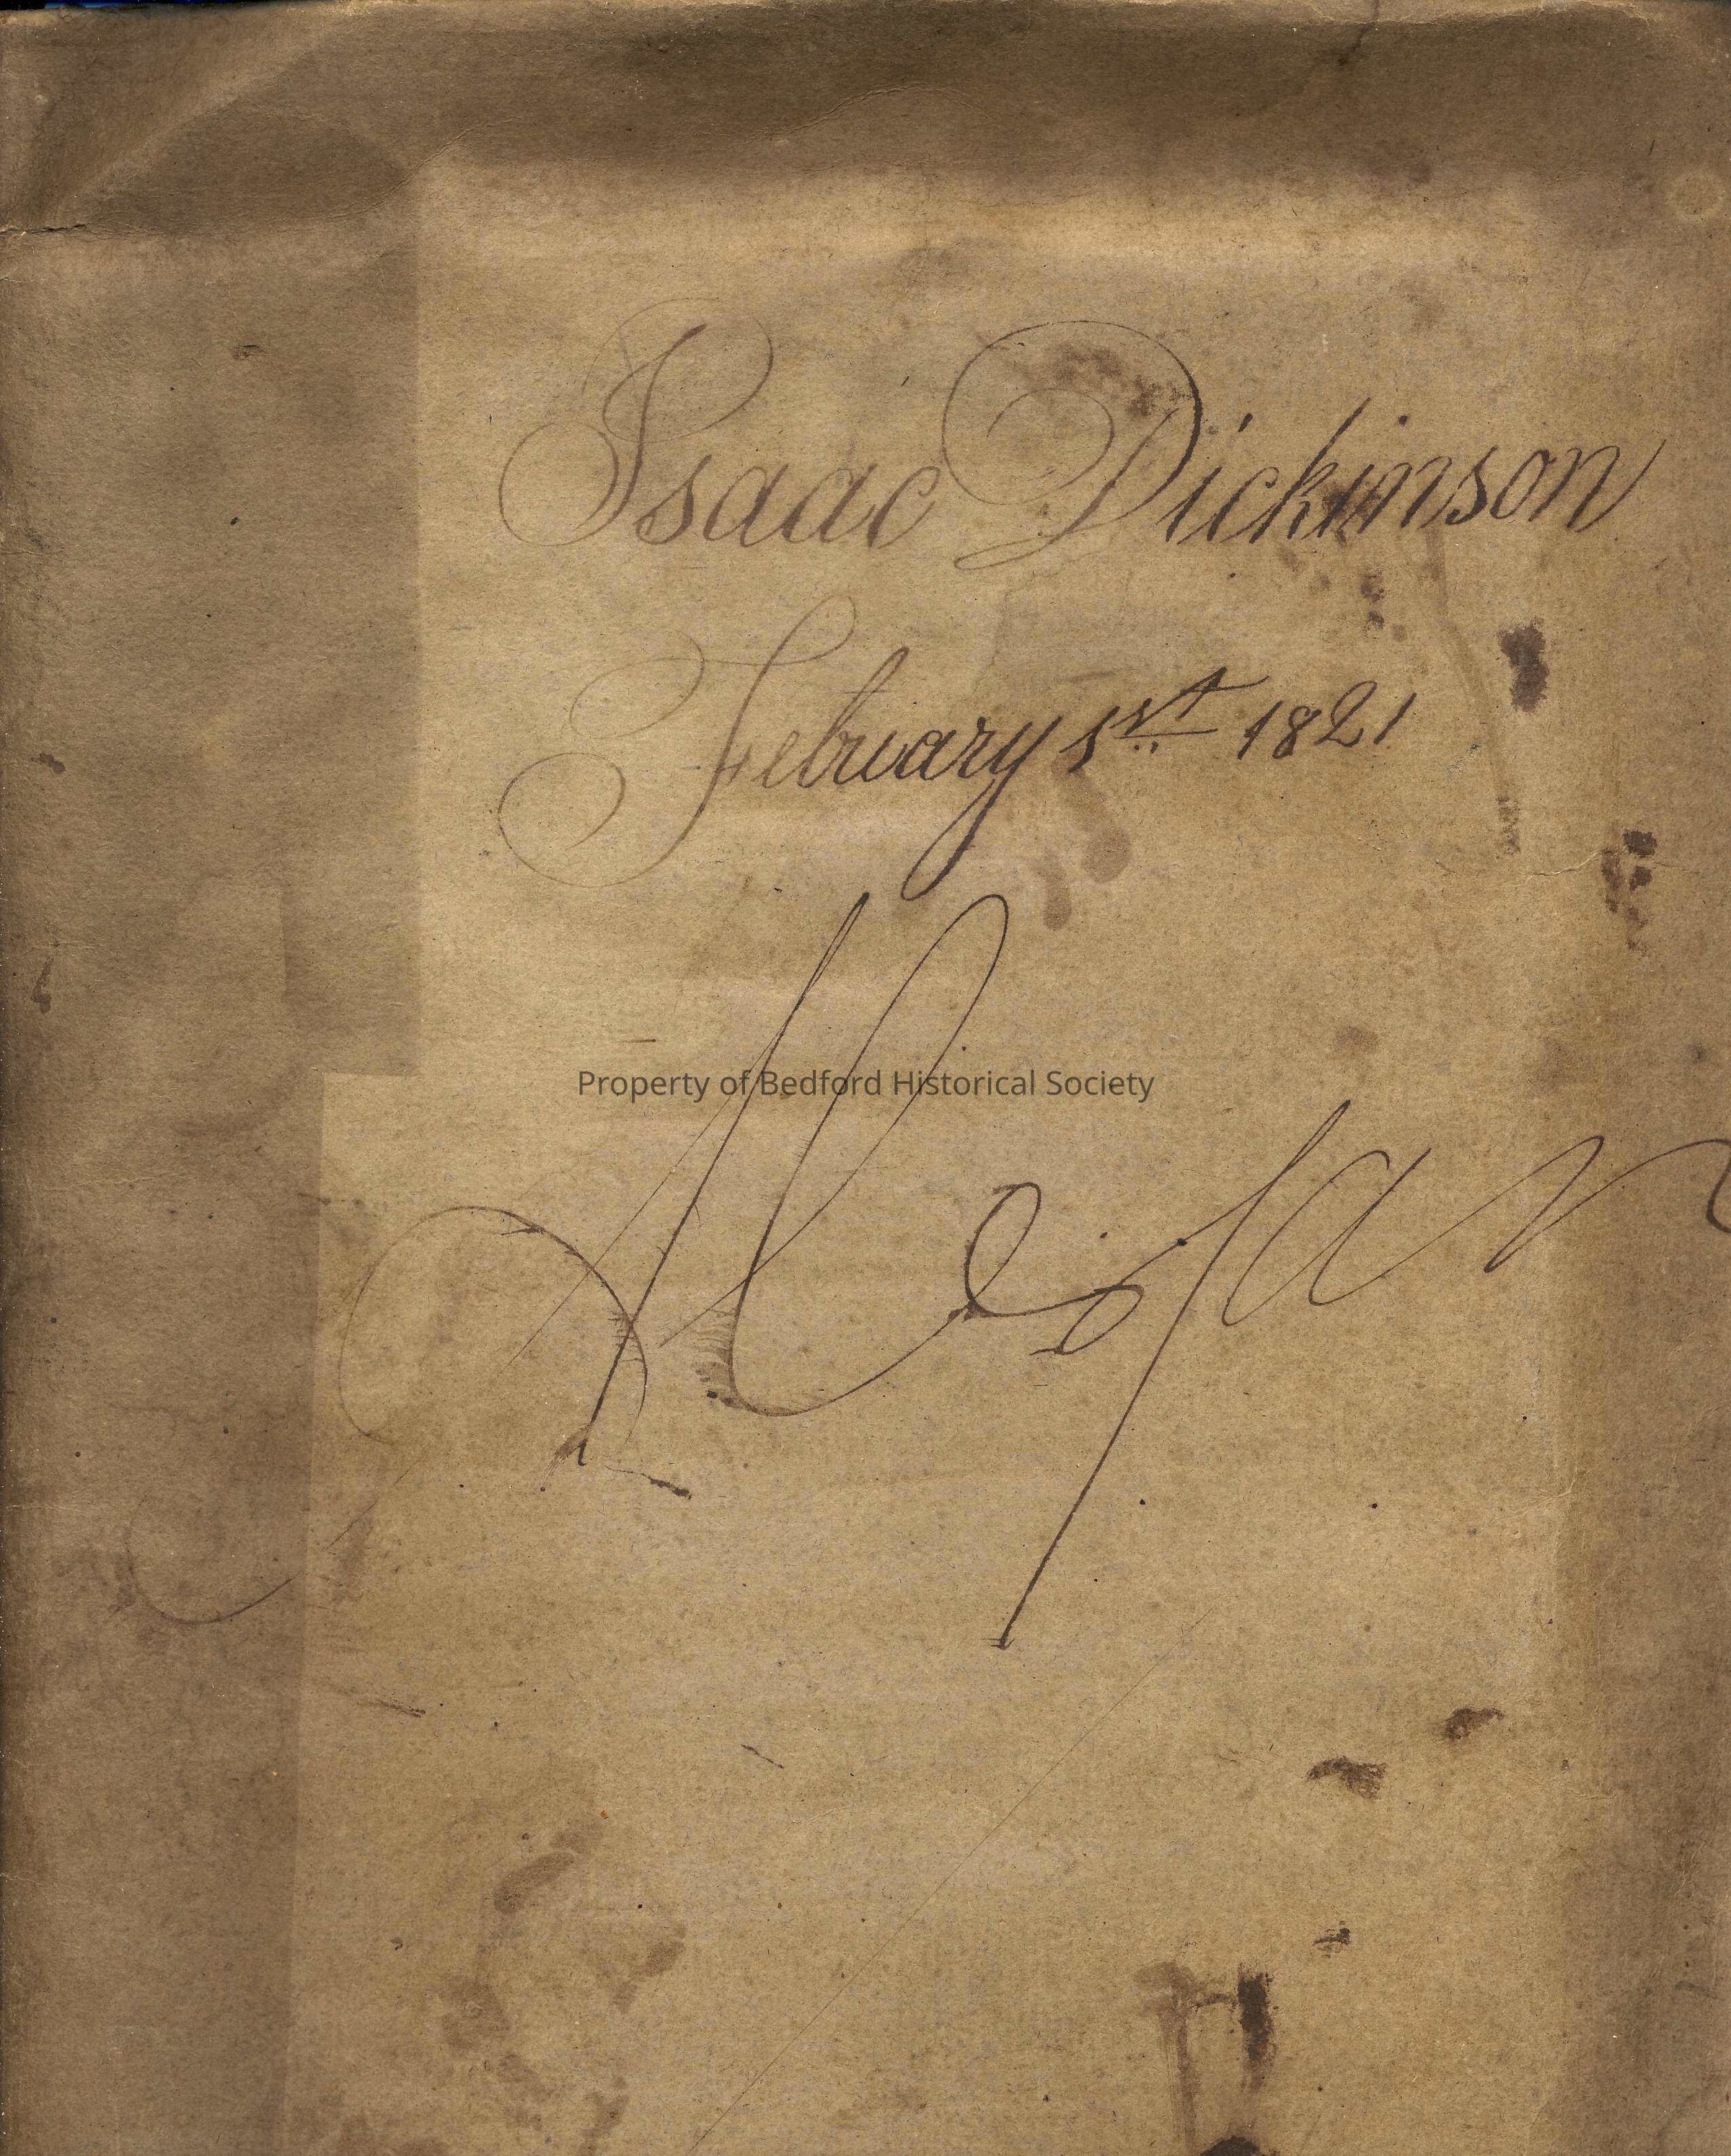 Isaac Dickinson
February 1st 1821
Property of Bedford Historical Society